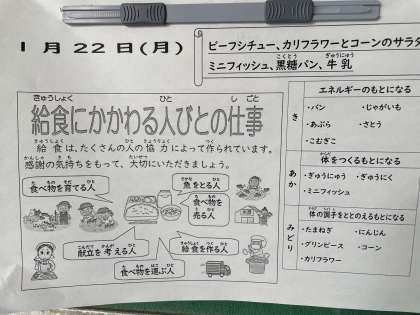 1月22日(月)
ビーフシチュー、カリフラワーとコーンのサラダ
ミニフィッシュ、黒糖パン、牛乳
給食にかかわる人びとの仕事
給食は、たくさんの人の協力によって作られています。
感謝の気持ちをもって、大切にいただきましょう。
食べ物を育てる人
魚をとる人
食べ物を
売る人
献立を考える人
給食を作る人
食べ物を運ぶ人
き
エネルギーのもとになる
・パン ・じゃがいも
・あぶら ・さとう
・こむぎこ
あか
体をつくるもとになる
・ぎゅうにゅう ・ぎゅうにく
・ミニフィッシュ
みどり
体の調子をととのえるもとになる
・たまねぎ ・にんじん
・グリンピース ・コーン
・カリフラワー